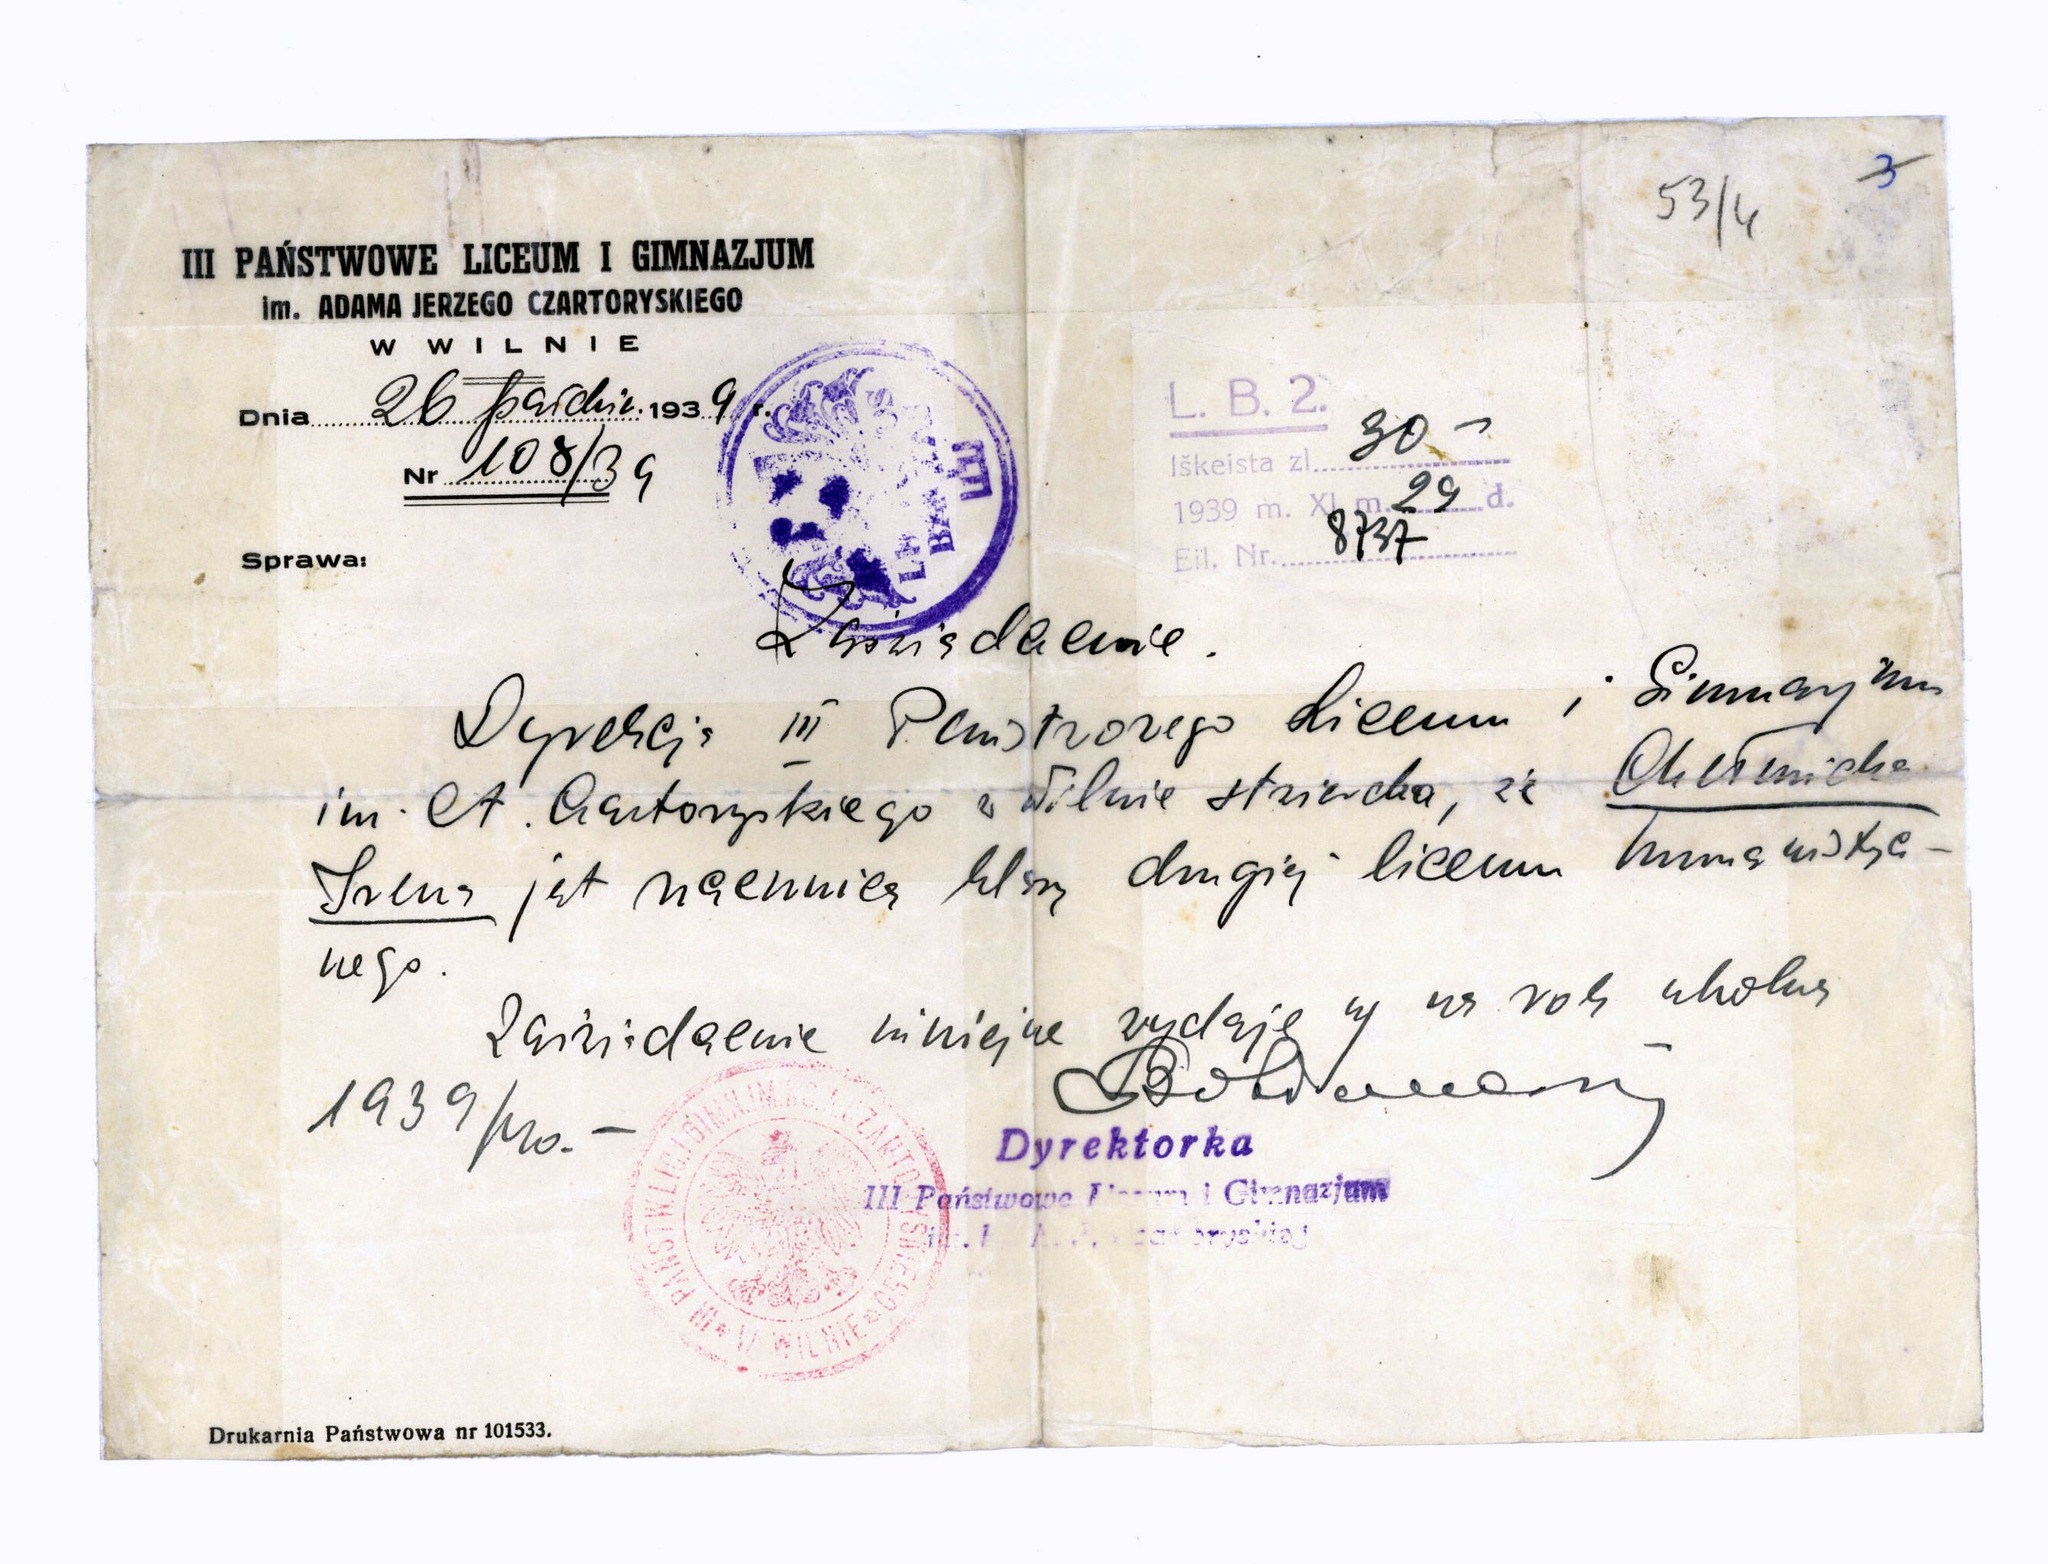 53/4
3
III PAŃSTWOWE LICEUM I GIMNAZJUM
im. ADAMA JERZEGO CZARTORYSKIEGO
W WILNIE
Dnia 26 paździer. 1939 r.
Nr 108/39
Sprawa:
L. B. 2.
Iškeista zl. 30 –
1939 m. XI m. 29 d.
Eil. Nr. 8737
Zaświadczenie.
Dyrekcja III Państwowego Liceum i Gimnazjum
im. A. Czartoryskiego w Wilnie stwierdza, że Chełmicka
Irena jest uczennicą klasy drugiej liceum humanistycz-
nego.
Zaświadczenie niniejsze wydaję się na rok szkolny
1939/40. –
Dyrektorka
III Państwowe Liceum i Gimnazjum
W WILNIE
Drukarnia Państwowa nr 101533.